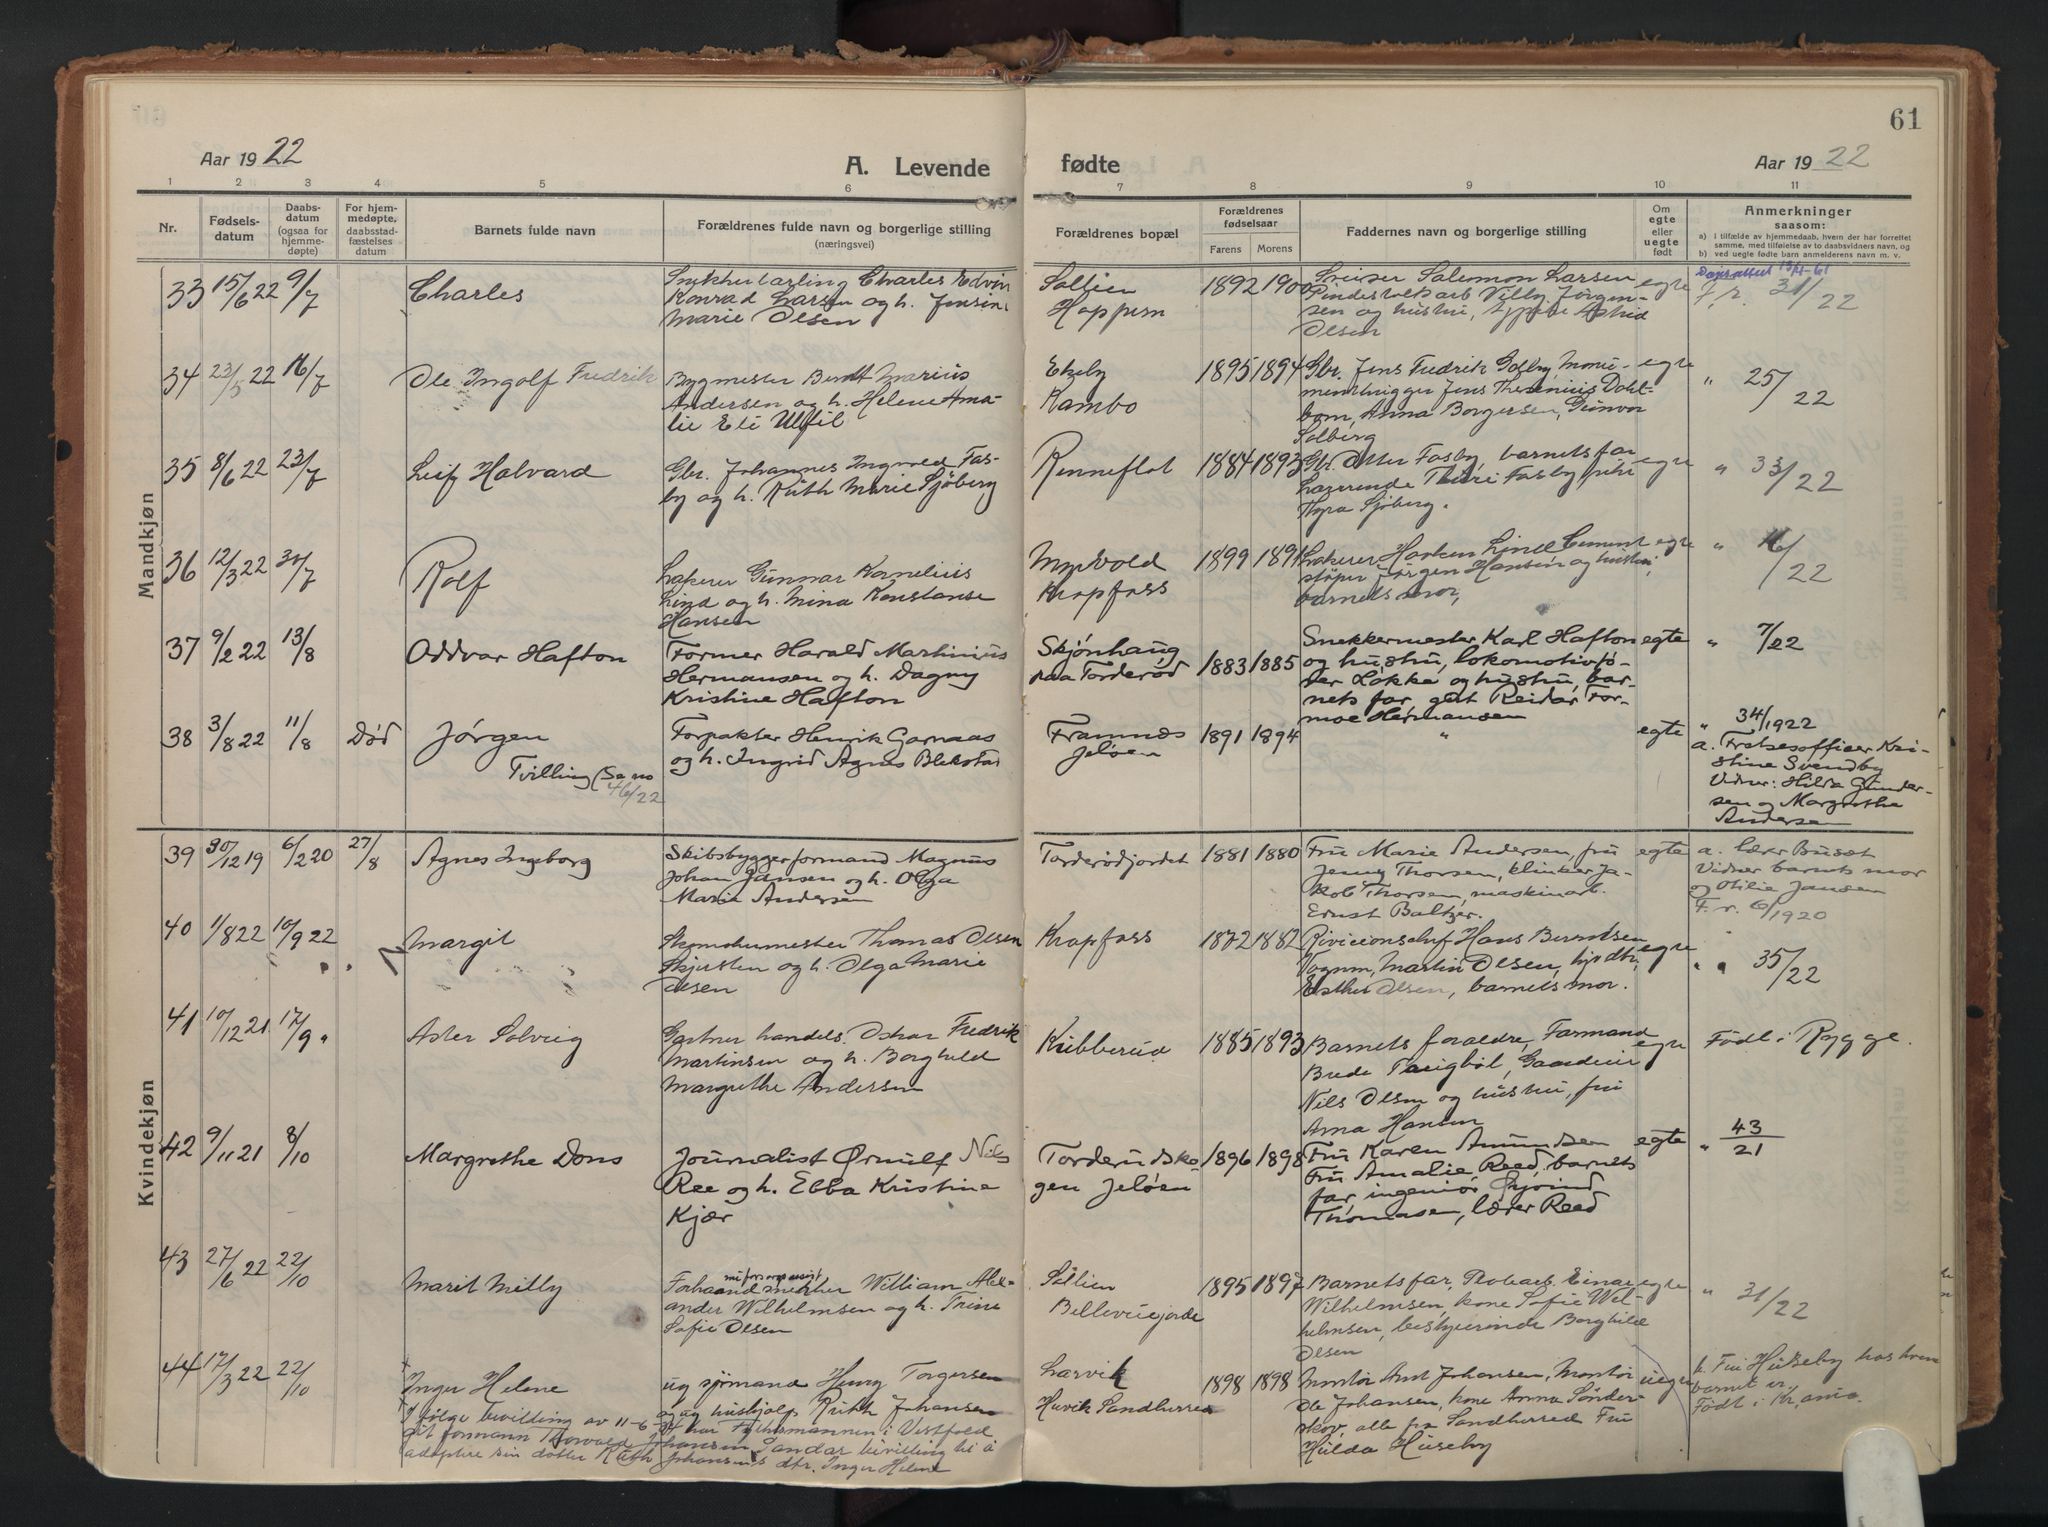 61
Aar 1922
A. Levende
fødte
Aar 1922
1 2 3 4 5 6 7 8 9 10 11
Nr.
Fødsels-
datum
Daabs-
datum
(ogsaa for
hjemme-
døpte)
For hjem-
medøpte,
daabsstad-
fæstelses
datum
Barnets fulde navn
Forældrenes fulde navn og borgerlige stilling
(næringsvei)
Forældrenes bopæl
Forældrenes
fødselsaar
Farens Morens
Faddernes navn og borgerlige stilling
Om
egte
eller
uegte
født
Anmerkninger
saasom:
a) i tilfælde av hjemmedaab, hvem der har forrettet
samme, med tilføielse av to daabsvidners navn, og
b) ved uegte født barn anmelderens navn m. v.
Mandkjøn
33 15/6 22 9/7 Charles
Charles Edvin
Konrad Larsen og h. Jensine
Marie Olsen
Sollien
Hoppern
1892 1900
Salomon Larsen
Villy Jørgen-
sen og hustru, Astrid
Olsen
egte
F. r. 31/22
34 23/5 22 16/7 Ole Ingolf Fredrik
Bygmester Berndt Marius
Andersen og h. Helene Ama-
lie Eli Ulfil
Ekeby
Kambo
1895 1894
Gbr. Jens Fredrik Gofby,
Jens Dahl-
bom, Anna Borgersen, Gunvor
Solberg
egte
" 25/22
35 8/6 22 23/7 Leif Halvard
Gbr. Johannes Ingvald Fas-
by og h. Ruth Marie Sjøberg
Renneflot
1884 1893
Gbr. Otter Fasby, barnets far
Lærerinde Fasby
Thyra Sjøberg.
egte
" 33/22
36 12/3 22 30/7 Rolf
Lakerer Gunnar Kornelius
Lind og h. Mina Konstanse
Hansen
Myrvold
Krapfoss
1899 1891
Lakerer Haaken Lind Cement
støper Jørgen Hansen og hustru,
barnets mor,
egte
" 16/22
37 9/2 22 13/8 Oddvar Hafton
Former Harald Martinius
Hermansen og h. Dagny
Kristine Hafton
Skjønhaug
paa Torderød
1883 1885
Snekkermester Karl Hafton
og hustru, lokomotivfø-
rer Løkke og hustru, bar-
nets far, gut Reidar Tor-
moe Hermansen
egte
" 7/22
38 3/8 22 11/8 Død Jørgen
Tvilling
46/22
Forpakter Henrik Garnaas
og h. Ingrid Agnes Blekstad
Framnes
Jeløen
1891 1894
"
egte
" 34/1922
a. Frelsesofficer Kri-
stine Svendby
Vidner: Hilda Gunder-
sen og Margrethe
Andersen
Kvindekjøn
39 30/12 19 6/2 20 27/8 Agnes Ingeborg
Skibsbyggerformand Magnus
Johan Jansen og h. Olga
Marie Andersen
Torderødjordet
1881 1880
Fru Marie Andersen, fru
Jenny Thorsen, klinker Ja-
kob Thorsen, maskinarb.
Ernst Baltzer.
egte
a. lærer Buset
Vidner barnets mor
og Otilie Jansen
F. r. 6/1920
40 1/8 22 10/9 22 Margit
Skomakermester Thomas Olsen
og h. Olga Marie
Olsen
Krapfoss
1872 1882
Hans Berntsen
Martin Olsen,
Esther Olsen, barnets mor.
egte
" " 35/22
41 10/12 21 17/9 " Aster Solveig
Gartner handels. Oskar Fredrik
Martinsen og h. Borghild
Margrethe Andersen
Kubberud
1885 1893
Barnets forældre, Formand
Nils Olsen og hustru, fru
Anna Hansen
egte
Født i Rygge.
42 9/11 21 8/10 Margrethe Dons
Journalist Ørnulf Nils
Ree og h. Ebba Kristine
Kjær
Torderudsko-
gen Jeløen
1896 1898
Fru Karen Amundsen
Fru Amalie Reed, barnets
far, ingeniør Øyvind
Thomasen, lærer Reed
egte
" 43/21
43 27/6 22 22/10 Marit Milly
William Alex-
ander Wilhelmsen og h. Trine
Sofie Olsen
Sollien
Bellevuejordet
1895 1897
Barnets far, Einar
Wilhelmsen, kone Sofie Wil-
helmsen, Borghild
Olsen
egte
" 31/22
44 17/3 22 22/10 Inger Helene
ug sjømand Henry Torgersen
og ug hushjelp Ruth Johansen
Larvik
Sandherred
1898 1898
Montør Arnt Johansen, Montør
Ole Johansen, kone Anna Sønder-
skov, alle fra Sandherred Fru
Hulda Huseby
uegte
b. Fru Huseby hos hvem
barnet er.
Født i Kr.ania
I følge bevilling av 11-6- har Fylkesmannen i Vestfold
git formann Torvald Johansen Sandar bevilling til å
adoptere sin datter Ruth Johansens dtr. Inger Helene